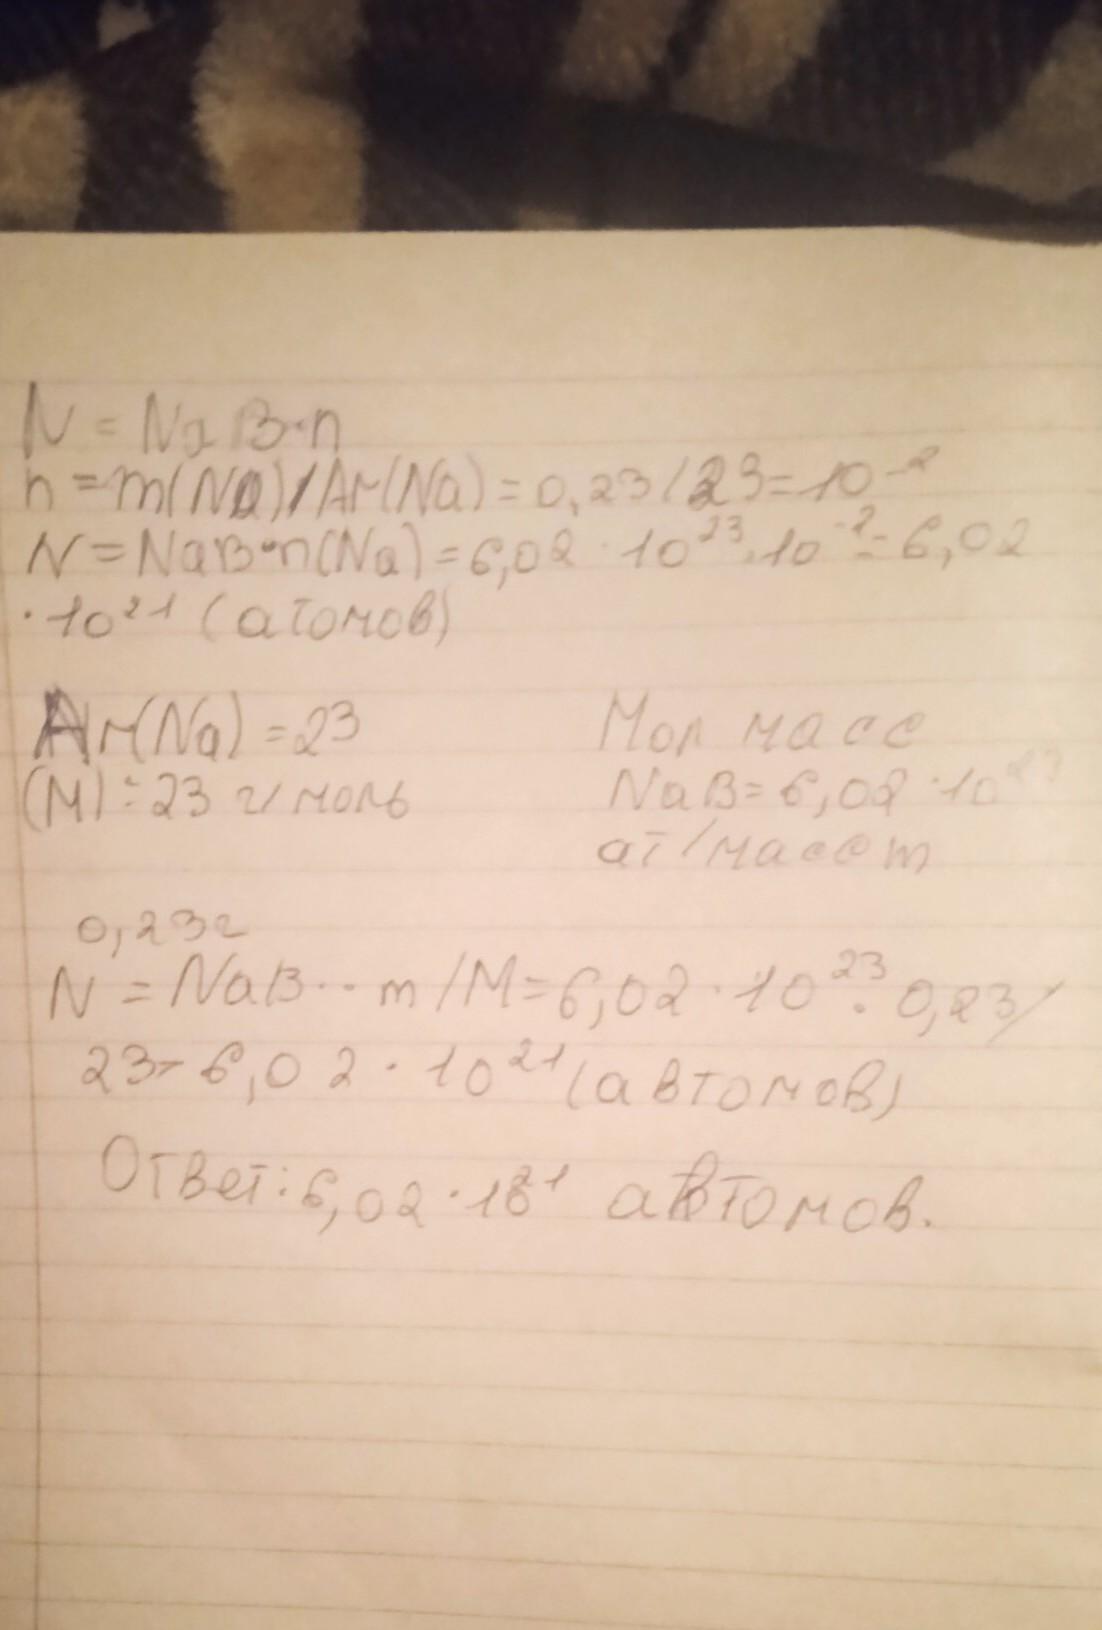 N = NaB·n
n = m(Na)/Ar(Na) = 0,23/23 = 10⁻²
N = NaB·n(Na) = 6,02 · 10²³ · 10⁻² = 6,02
· 10²¹ (атомов)
Ar(Na) = 23
(M) = 23 г/моль
Мол масс
NaB = 6,02 · 10²³
ат/массm
0,23г
N = NaB·· m/M = 6,02 · 10²³ · 0,23/
23 = 6,02 · 10²¹ (автомов)
Ответ: 6,02 · 10²¹ автомов.